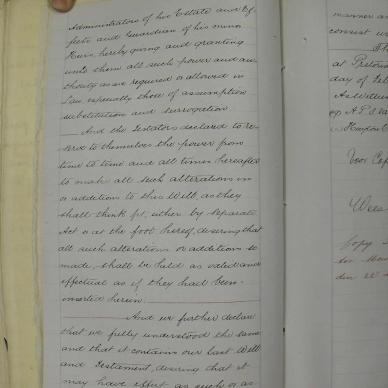 Administrators of his Estate and Ef-
fects and Guardian of his minor
Heirs hereby giving and granting
unto them all such power and au-
thority as are required or allowed in
Law especially those of assumption
substitution and surrogation.
And the Testators declared to re-
serve to themselves the power from
time to time and all times hereafter
to make all such alterations in
or additions to this Will, as they
shall think fit, either by separate
Act or at the foot hereof, desiring that
all such alterations or additions so
made, shall be held as valid and
effectual as if they had been
inserted herein.
And we further declare
that we fully understood the same
and that it contains our last Will
and Testament, desiring that it
may have effect as such or as
manner a
consist w
Th
at Pretor
day of
As Witn